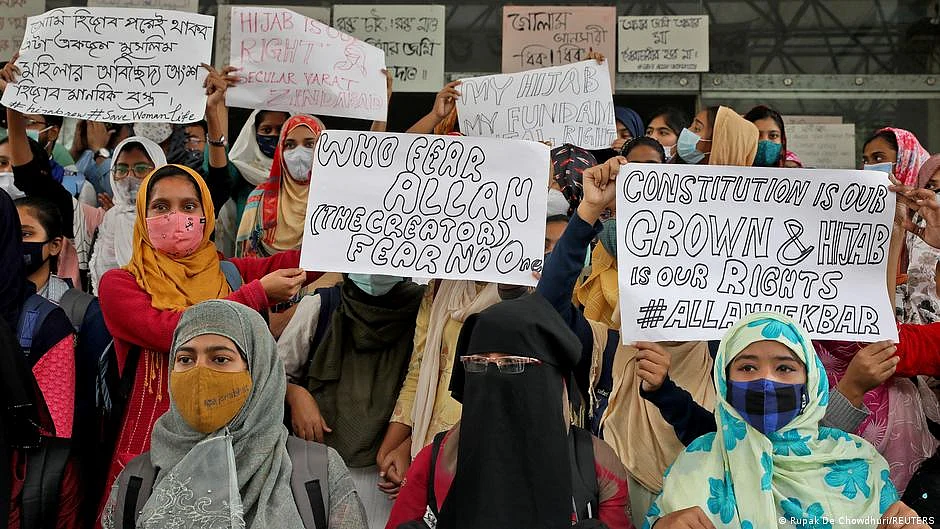 আমি হিজাব পরেই থাকব
এটা একজন মুসলিম
মহিলার অবিচ্ছেদ্য অংশ
হিজাব মানবিক বস্ত্র
#hijabrow #SaveWomanLife
HIJAB IS OU
RIGHT'S
SECULAR VARAT
ZINDABAD
গোলাম
আনসারী
MY HIJAB
MY FUNDAM
TAL RIGHT
WHO FEAR
ALLAH
(THE CREATOR)
FEAR NO One
CONSTITUTION IS OUR
CROWN & HIJAB
IS OUR RIGHTS
#ALLAHUEKBAR
© Rupak De Chowdhuri/REUTERS